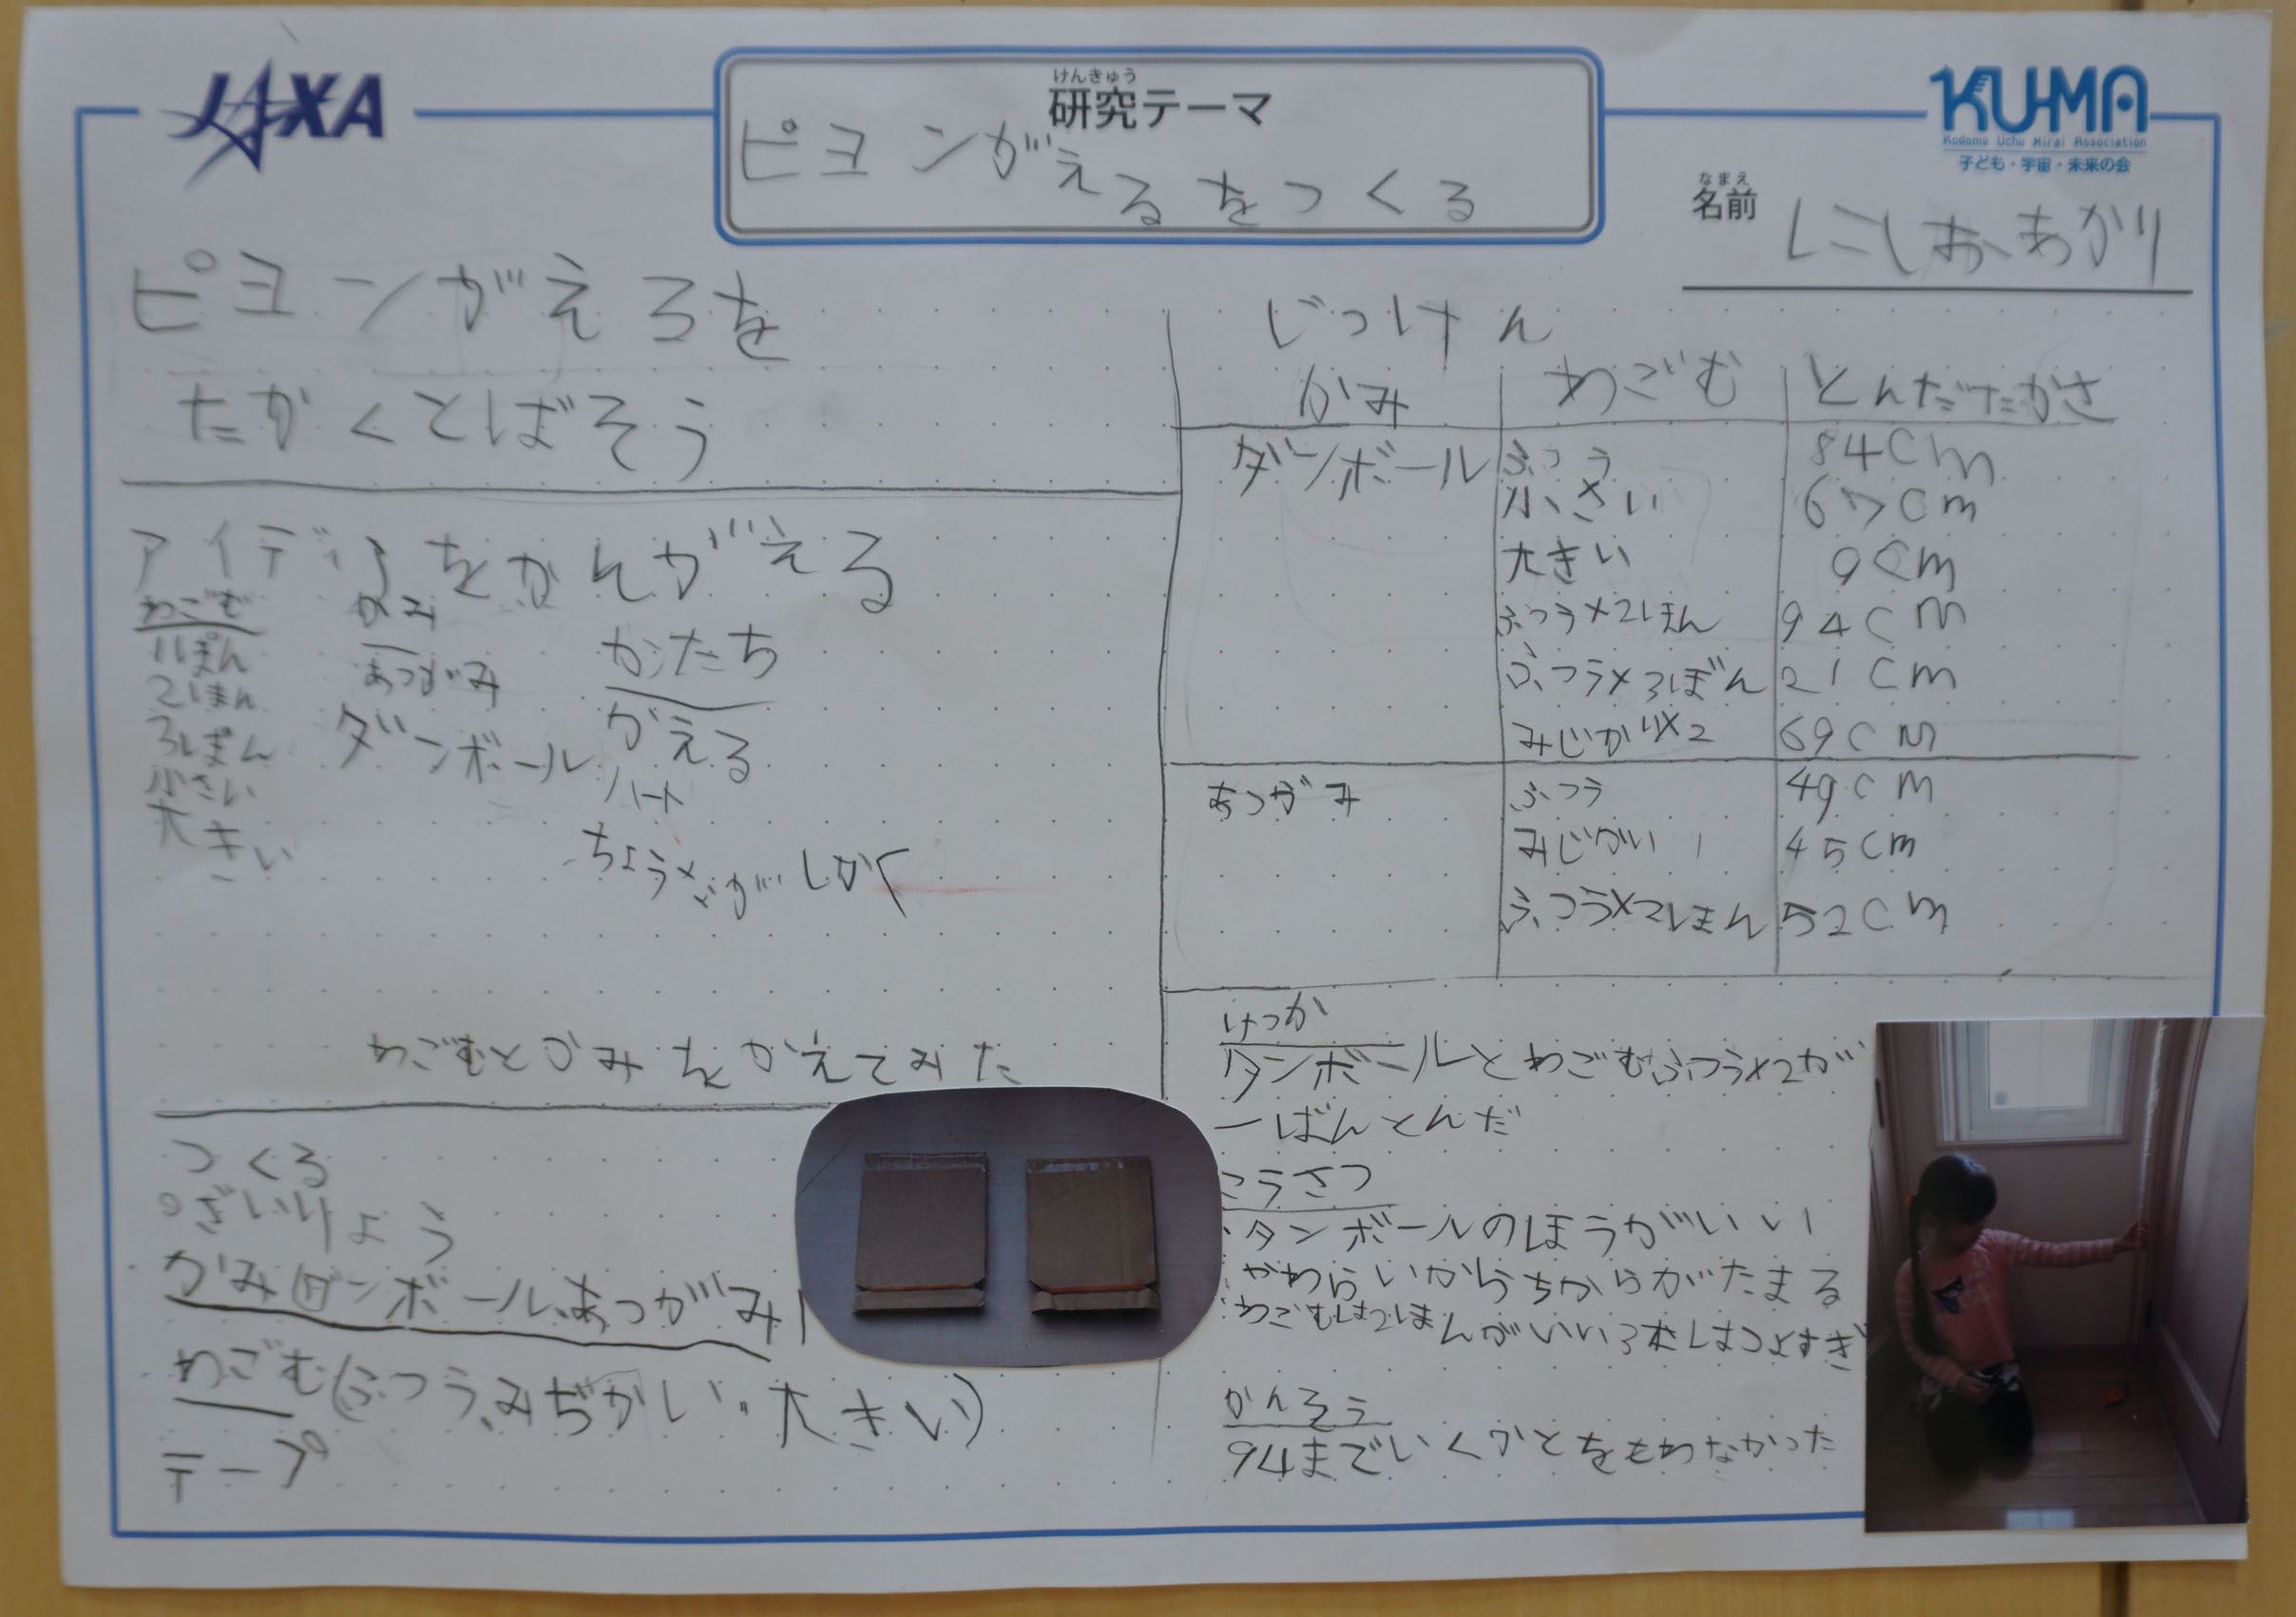 JAXA
けんきゅう
研究テーマ
ピヨンがえるをつくる
KU-MA
Kodomo Uchu Mirai Association
子ども・宇宙・未来の会
なまえ
名前
にしお あかり
ピヨンがえろを
たかくとばそう
アイディアをかんがえる
わごむ
1ぽん
2ほん
3ぽん
小さい
大きい
かみ
あつがみ
ダンボール
かたち
かえる
ハート
しかく
わごむとかみをかえてみた
つくる
ざいりょう
かみ ダンボール、あつがみ
わごむ(ふつう、みぢかい・大きい)
テープ
じっけん
かみ わごむ とんだたかさ
ダンボール ふつう 84cm
小さい 67cm
大きい 9cm
ふつう×2ほん 94cm
ふつう×3ぼん 21cm
みじかい×2 69cm
あつがみ ふつう 49cm
みじかい 45cm
ふつう×2ほん 52cm
けっか
タンボールとわごむふつう×2が
一ばんとんだ
こうさつ
・タンボールのほうがいい
やわらいからちからがたまる
わごむは2ほんがいい3本はつよすぎ
かんそう
94までいくかとをもわなかった